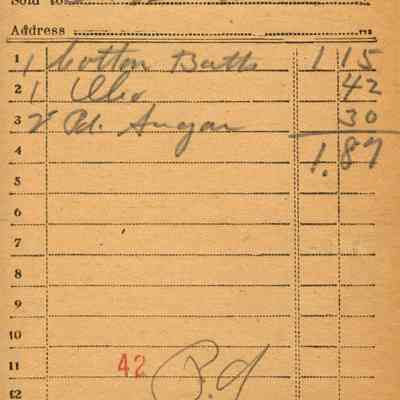 Sold to
Address
1 1 Cotton Batts 1 15
2 1 Oleo 42
3 2 Pd. Sugar 30
4 1.87
5
6
7
8
9
10
11 42 Pd
12